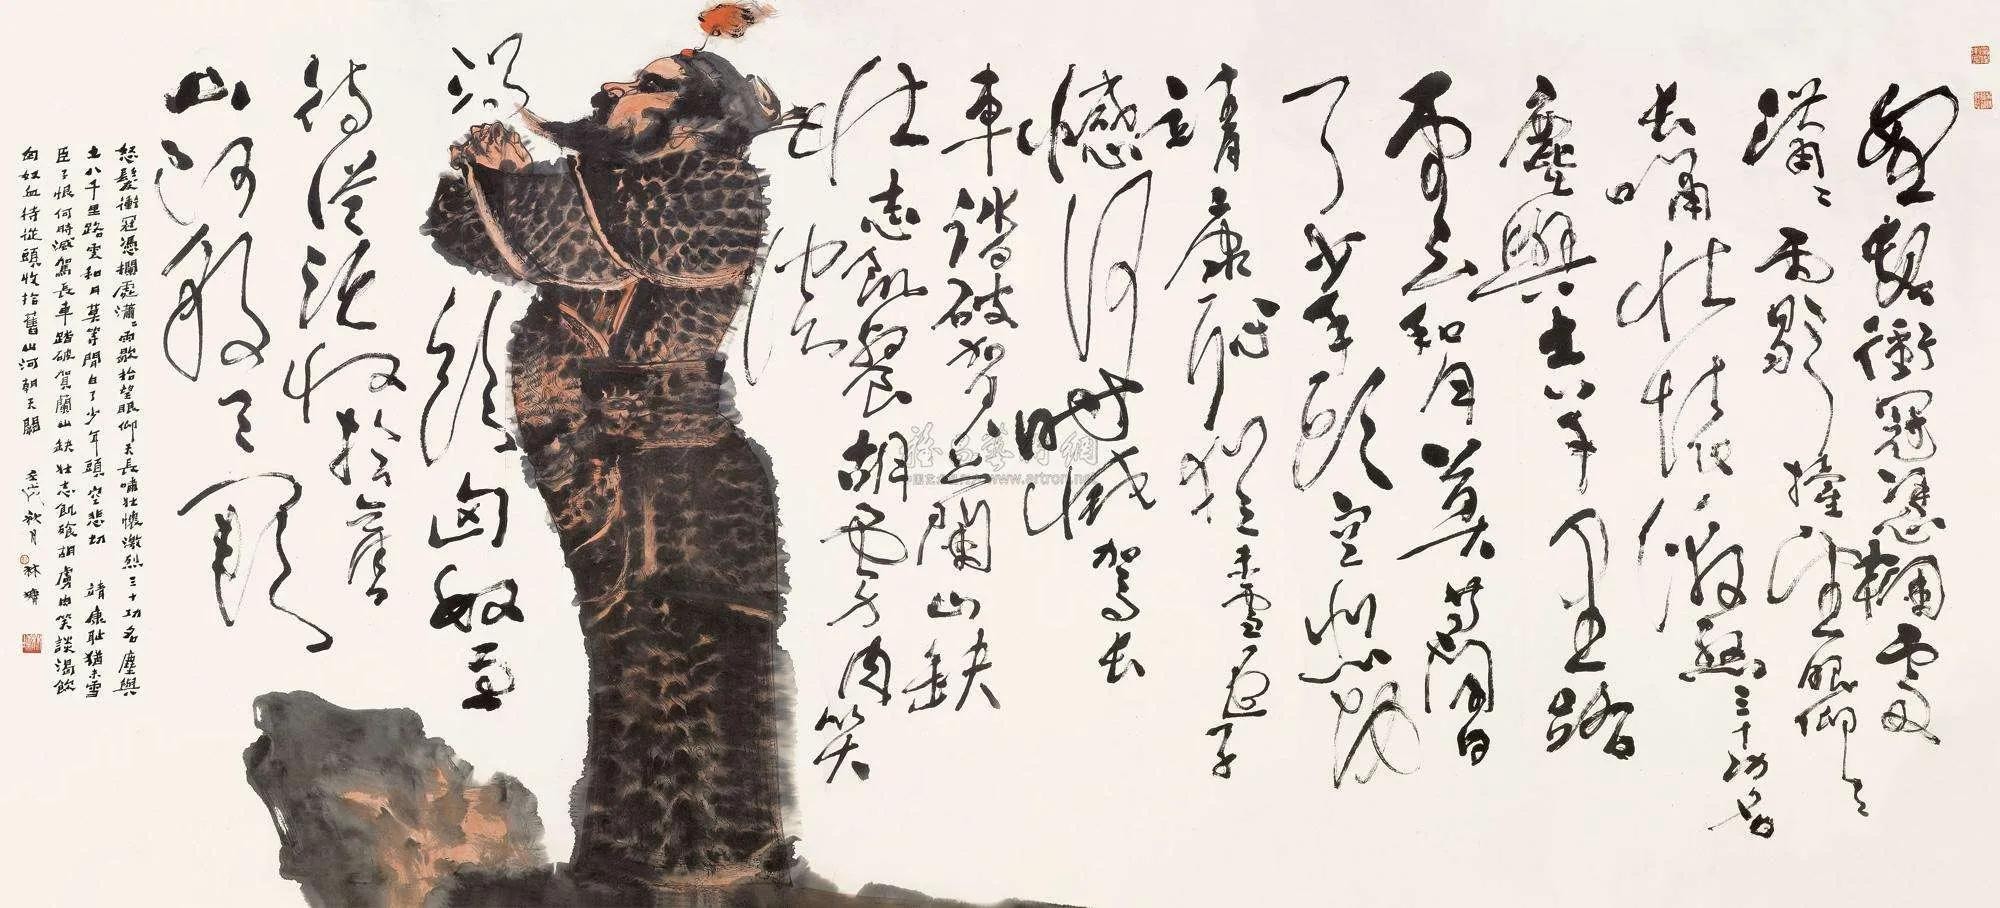 怒髮衝冠憑欄處
瀟〻雨歇擡望眼仰天
長嘯壯懷激烈三十功名
塵與土八千里路
雲和月莫等閒白
了少年頭空悲切
靖康恥猶未雪臣子
憾何時滅駕長
車踏破賀蘭山缺
壯志飢餐胡虜肉笑
渴飲匈奴血
待從頭收拾舊
山河朝天闕
怒髮衝冠憑欄處瀟〻雨歇抬望眼仰天長嘯壯懷激烈三十功名塵與
土八千里路雲和月莫等閒白了少年頭空悲切 靖康恥猶未雪
臣子恨何時滅駕長車踏破賀蘭山缺壯志飢餐胡虜肉笑談渴飲
匈奴血待從頭收拾舊山河朝天闕 壬戌秋月 林墉
雅昌藝術網
www.artron.net